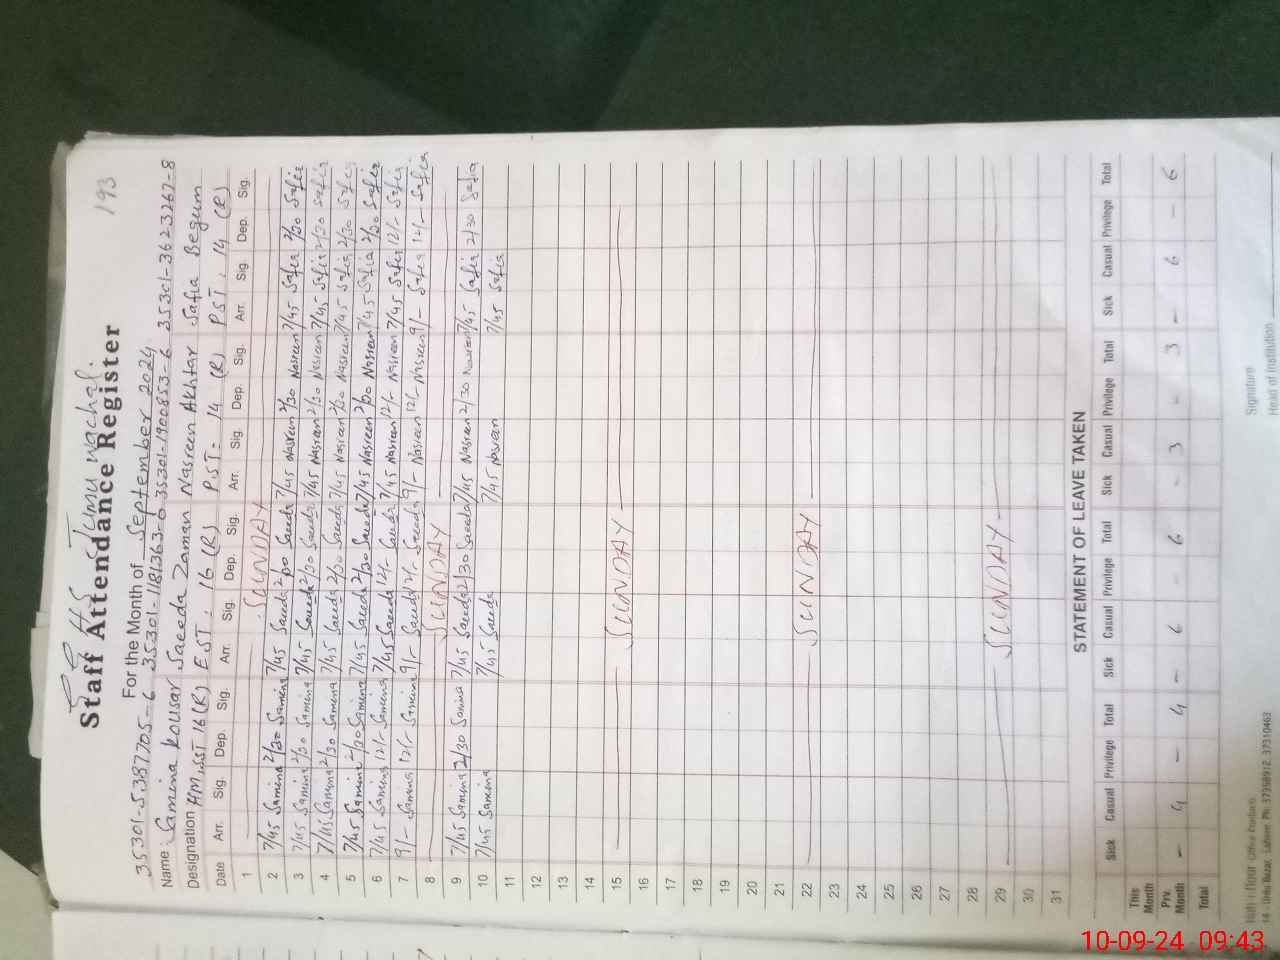 193
Staff Attendance Register
For the Month of September 2024
35301-5387705-6 35301-1181363-0 35301-1900853-6 35301-3623267-8
Name: Samina Kousar Saeeda Zaman Nasreen Akhtar Safia Begum
Designation HM, SST 16 (R) EST. 16 (R) PST- 14 (R) PST. 14 (R)
Date Arr. Sig. Dep. Sig. Arr. Sig. Dep. Sig. Arr. Sig. Dep. Sig. Arr. Sig. Dep. Sig.
1 SUNDAY
2 7/45 Samina 2/30 Samina 7/45 Saeeda 2/30 Saeeda 7/45 Nasreen 2/30 Nasreen 7/45 Safia 2/30 Safia
3 7/45 Samina 2/30 Samina 7/45 Saeeda 2/30 Saeeda 7/45 Nasreen 2/30 Nasreen 7/45 Safia 2/30 Safia
4 7/45 Samina 2/30 Samina 7/45 Saeeda 2/30 Saeeda 7/45 Nasreen 2/30 Nasreen 7/45 Safia 2/30 Safia
5 7/45 Samina 2/30 Samina 7/45 Saeeda 2/30 Saeeda 7/45 Nasreen 2/30 Nasreen 7/45 Safia 2/30 Safia
6 7/45 Samina 12/- Samina 7/45 Saeeda 12/- Saeeda 7/45 Nasreen 12/- Nasreen 7/45 Safia 12/- Safia
7 9/- Samina 12/- Samina 9/- Saeeda 12/- Saeeda 9/- Nasreen 12/- Nasreen 9/- Safia 12/- Safia
8 SUNDAY
9 7/45 Samina 2/30 Samina 7/45 Saeeda 2/30 Saeeda 7/45 Nasreen 2/30 Nasreen 7/45 Safia 2/30 Safia
10 7/45 Samina 7/45 Saeeda 7/45 Nasreen 7/45 Safia
11
12
13
14
15 SUNDAY
16
17
18
19
20
21
22 SUNDAY
23
24
25
26
27
28
29 SUNDAY
30
31
STATEMENT OF LEAVE TAKEN
Sick Casual Privilege Total Sick Casual Privilege Total Sick Casual Privilege Total Sick Casual Privilege Total
This Month
Prv. Month - 4 - 4 - 6 - 6 - 3 - 3 - 6 - 6
Total
Signature
Head of Institution
14 - Urdu Bazar, Lahore. Ph: 37358912, 37310463
10-09-24 09:43